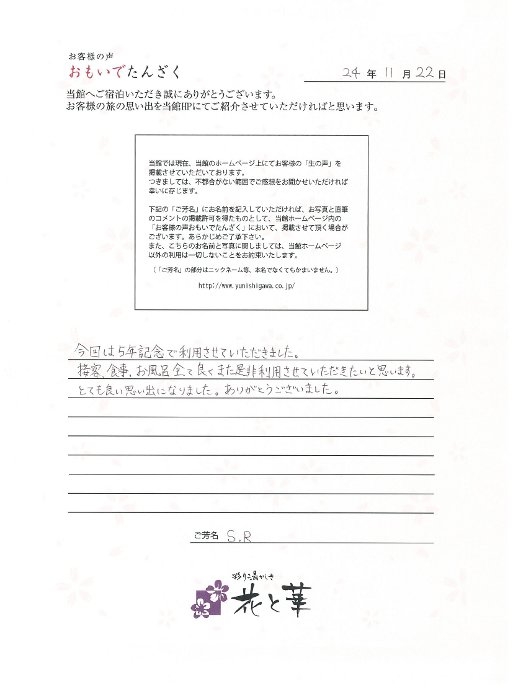 お客様の声
おもいでたんざく
24 年 11 月 22 日
当館へご宿泊いただき誠にありがとうございます。
お客様の旅の思い出を当館HPにてご紹介させていただければと思います。
当館では現在、当館のホームページ上にてお客様の「生の声」を
掲載させていただいております。
つきましては、不都合がない範囲でご感想をお聞かせいただければ
幸いに存じます。
下記の「ご芳名」にお名前を記入していただければ、お写真と直筆
のコメントの掲載許可を得たものとして、当館ホームページ内の
「お客様の声おもいでたんざく」において、掲載させて頂く場合が
ございます。あらかじめご了承下さい。
また、こちらのお名前と写真に関しましては、当館ホームページ
以外の利用は一切しないことをお約束いたします。
(「ご芳名」の部分はニックネーム等、本名でなくてもかまいません。)
http://www.yunishigawa.co.jp/
今回は5年記念で利用させていただきました。
接客、食事、お風呂全て良くまた是非利用させていただきたいと思います。
とても良い思い出になりました。ありがとうございました。
ご芳名 S.R
彩り湯かしき
花と華